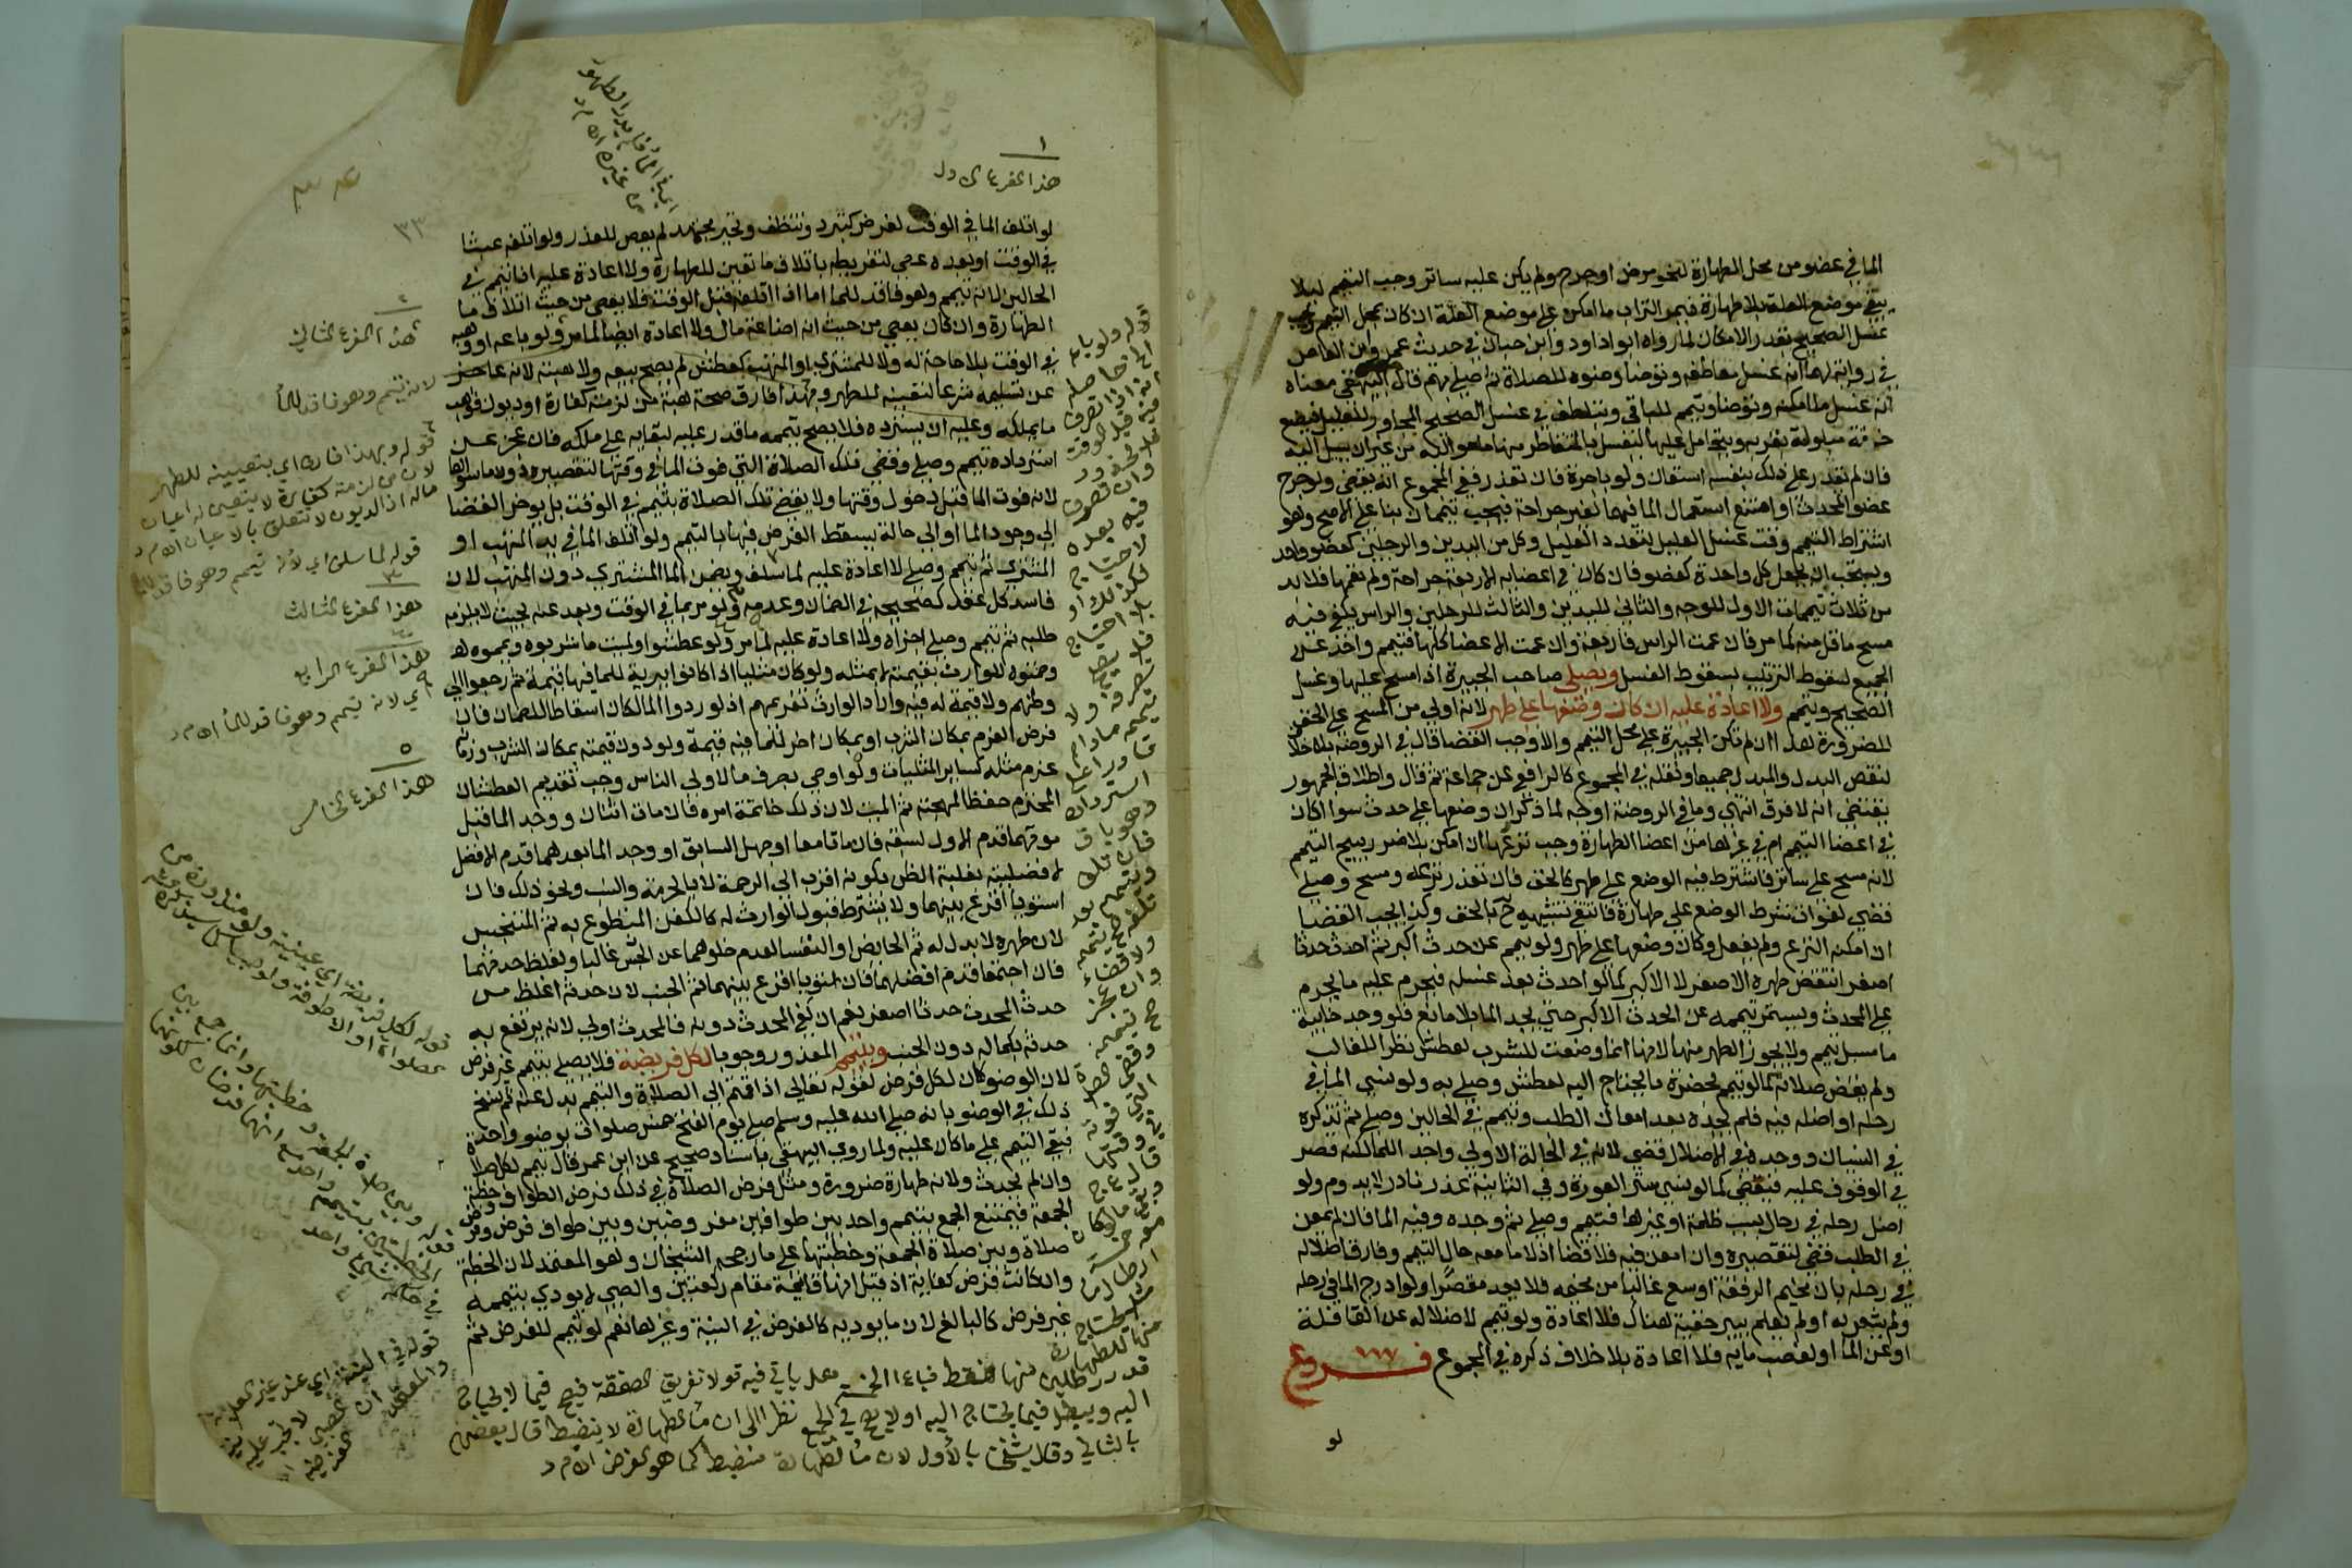 الما في عضو من محل الطهارة لنحو مرض او جرح ولم يكن عليه ساتر وجب التيمم ليلا
يبقى موضع العلة بلا طهارة فيمر التراب ما امكن على موضع العلة ان كان بمحل التيمم ويجب
غسل الصحيح بقدر الامكان لما رواه ابو داود وابن حبان في حديث عمرو ابن العاص
في رواية لهما انه غسل معاطفه وتوضا وضوه للصلاة ثم صلى بهم قال البيهقي معناه
انه غسل ما امكنه وتوضا وتيمم للباقي ويتلطف في غسل الصحيح المجاور للعليل فيضع
خرقة مبلولة بقربه ويتحامل عليها لينغسل بالمتقاطر منها ما حواليه من غير ان يسيل اليه
فان لم يقدر على ذلك بنفسه استعان ولو باجرة فان تعذر ففي المجموع انه يقضي ولو جرح
عضو المحدث او امتنع استعمال الما فيهما لغير جراحة فيجب تيممان بنا على الاصح وهو
اشتراط التيمم وقت غسل العليل لتعدد العليل وكل من اليدين والرجلين كعضو واحد
ويستحب ان يجعل كل واحدة كعضو فان كان في اعضايه الاربعة جراحة ولم تعمها فلا بد
من ثلاث تيممات الاول للوجه والثاني لليدين والثالث للرجلين والراس يكفي فيه
مسح ما قل منه كما مر فان عمت الراس فاربعة وان عمت الاعضا كلها فتيمم واحد عن
الجميع لسقوط الترتيب بسقوط الغسل ويصلي صاحب الجبيرة اذا مسح عليها وغسل
الصحيح وتيمم ولا اعادة عليه ان كان وضعها على طهر لانه اولى من المسح على الخف
للضرورة هذا ان لم تكن الجبيرة على محل التيمم والا وجب القضا قال في الروضة بلا خلاف
لنقص البدل والمبدل جميعا ونقله في المجموع كالرافعي عن جماعة ثم قال واطلاق الجمهور
يقتضي انه لا فرق انتهى وما في الروضة اوجه لما ذكر ان وضعها على حدث سوا اكان
في اعضا التيمم ام في غيرها من اعضا الطهارة وجب نزعها ان امكن بلا ضرر يبيح التيمم
لانه مسح على ساتر فاشترط فيه الوضع على طهر كالخف فان تعذر نزعه ومسح وصلى
قضى لفوات شرط الوضع على طهارة فانتفى تشبيهه ح بالخف وكذا يجب القضا
ان امكنه النزع ولم يفعل وكان وضعها على طهر ولو تيمم عن حدث اكبر ثم احدث حدثا
اصغر انتقض طهره الاصغر لا الاكبر كما لو احدث بعد غسله فيحرم عليه ما يحرم
على المحدث ويستمر تيممه عن الحدث الاكبر حتى يجد الما بلا مانع فلو وجد خابية
ما مسبل تيمم ولا يجوز الطهر منها لانها انما وضعت للشرب لعطش نظرا للغالب
ولم يقض صلاته كما لو تيمم بحضرة ما يحتاج اليه لعطش وصلى به ولو نسي الما في
رحله او اضله فيه فلم يجده بعد امعان الطلب وتيمم في الحالين وصلى ثم تذكره
في النسيان ووجده في الاضلال قضى لانه في الحالة الاولى واجد الما لكنه قصر
في الوقوف عليه فيقضي كما لو نسي ستر العورة وفي الثانية عذر نادر لا يدوم ولو
اضل رحله في رحال بسبب ظلمة او غيرها فتيمم وصلى ثم وجده وفيه الما فان لم يمعن
في الطلب قضى لتقصيره وان امعن فيه فلا قضا اذ لا ما معه حال التيمم وفارق اضلاله
في رحله بان مخيم الرفقة اوسع غالبا من مخيمه فلا يعد مقصرا ولو ادرج الما في رحله
ولم يشعر به او لم يعلم ببير خفية هناك فلا اعادة ولو تيمم لاضلاله عن القافلة
او عن الما او لغصب مايه فلا اعادة بلا خلاف ذكره في المجموع فروع
لو
١
هذا الفرع الاول
لو اتلف الما في الوقت لغرض كتبرد وتنظف وتحير مجتهد لم يعص للعذر ولو اتلفه عبثا
في الوقت او بعده عصى لتفريطه باتلاف ما تعين للطهارة ولا اعادة عليه اذا تيمم في
الحالين لانه تيمم وهو فاقد للما اما اذا اتلفه قبل الوقت فلا يعصي من حيث اتلاف ما
الطهارة وان كان يعصي من حيث انه اضاعة مال ولا اعادة ايضا لما مر ولو باعه او وهبه
في الوقت بلا حاجة له ولا للمشتري او المتهب كعطش لم يصح بيعه ولا هبته لانه عاجز
عن تسليمه شرعا لتعينه للطهر وبهذا فارق صحة هبة من لزمته كفارة او ديون فوهب
ما يملكه وعليه ان يسترده فلا يصح تيممه ما قدر عليه لبقايه على ملكه فان عجز عن
استرداده تيمم وصلى وقضى تلك الصلاة التي فوت الما في وقتها لتقصيره دون ما سواها
لانه فوت الما قبل دخول وقتها ولا يقضي تلك الصلاة بتيمم في الوقت بل يوخر القضا
الى وجود الما او الى حالة يسقط الفرض فيها بالتيمم ولو اتلف الما في يد المتهب او
المشتري ثم تيمم وصلى لا اعادة عليه لما سلف ويضمن الما المشتري دون المتهب لان
فاسد كل عقد كصحيحه في الضمان وعدمه ولو مر بما في الوقت وبعد عنه بحيث لا يلزمه
طلبه ثم تيمم وصلى اجزاه ولا اعادة عليه لما مر ولو عطشوا ولميت ما شربوه ويمموه
وضمنوه للوارث بقيمته لا بمثله ولو كان مثليا اذا كانوا ببرية للما فيها قيمة ثم رجعوا الى
وطنهم ولا قيمة له فيه واراد الوارث تغريمهم اذ لو ردوا الما لكان اسقاطا للضمان فان
فرض الغرم بمكان الشرب او بمكان اخر للما فيه قيمة ولو دون قيمته بمكان الشرب وزمانه
غرم مثله كساير المثليات ولو اوصى بصرف ما لاولى الناس وجب تقديم العطشان
المحترم حفظا لمهجته ثم الميت لان ذلك خاتمة امره فان مات اثنان ووجد الما قبل
موتهما قدم الاول لسبقه فان ماتا معا او جهل السابق او وجد الما بعدهما قدم الافضل
لافضليته بغلبة الظن بكونه اقرب الى الرحمة لا بالحرية والنسب ونحو ذلك فان
استويا اقرع بينهما ولا يشترط قبول الوارث له كالكفن المتطوع به ثم المتنجس
لان طهره لا بدل له ثم الحايض او النفسا لعدم خلوهما عن النجس غالبا ولغلظ حدثهما
فان اجتمعا قدم افضلهما فان استويا اقرع بينهما ثم الجنب لان حدثه اغلظ من
حدث المحدث حدثا اصغر نعم ان كفى المحدث دونه فالمحدث اولى لانه يرتفع به
حدثه بكماله دون الجنب ويتيمم المعذور وجوبا لكل فريضة فلا يصلي بتيمم غير فرض
لان الوضو كان لكل فرض لقوله تعالى اذا قمتم الى الصلاة والتيمم بدل عنه ثم نسخ
ذلك في الوضو بانه صلى الله عليه وسلم صلى يوم الفتح خمس صلوات بوضو واحد
فبقي التيمم على ما كان عليه ولما روى البيهقي باسناد صحيح عن ابن عمر قال يتيمم لكل صلاة
وان لم يحدث ولانه طهارة ضرورة ومثل فرض الصلاة في ذلك فرض الطواف وخطبة
الجمعة فيمتنع الجمع بتيمم واحد بين طوافين مفروضين وبين طواف فرض وفرض
صلاة وبين صلاة الجمعة وخطبتها على ما رجحه الشيخان وهو المعتمد لان الخطبة
وان كانت فرض كفاية اذ قيل انها قايمة مقام ركعتين والصبي لا يودي بتيممه
غير فرض كالبالغ لان ما يوديه كالفرض في النية وغيرها نعم لو تيمم للفرض ثم
٢
هذا الفرع الثاني
لانه تيمم وهو فاقد للما
قوله وبهذا فارق اي بتعيينه للطهر
لان من لزمته كفارة لا يتعين له اعيان
ماله اذ الديون لا تتعلق بالاعيان اه م د
قوله لما سلف اي لانه تيمم وهو فاقد للما
٣
هذا الفرع الثالث
هذا الفرع الرابع
اي لانه تيمم وهو فاقد للما اه م د
٥
هذا الفرع الخامس
قدر رطلين منها فقط فباع الخمسة فهل ياتي فيه قولا تفريق الصفقة فيصح فيما لا يحتاج
اليه ويبطل فيما يحتاج اليه او لا يصح في الجميع نظرا الى ان ما الطهارة لا ينضبط قال بعضهم
بالثاني وقال شيخنا بالاول لان ما الطهارة منضبط كما هو الفرض اه م د